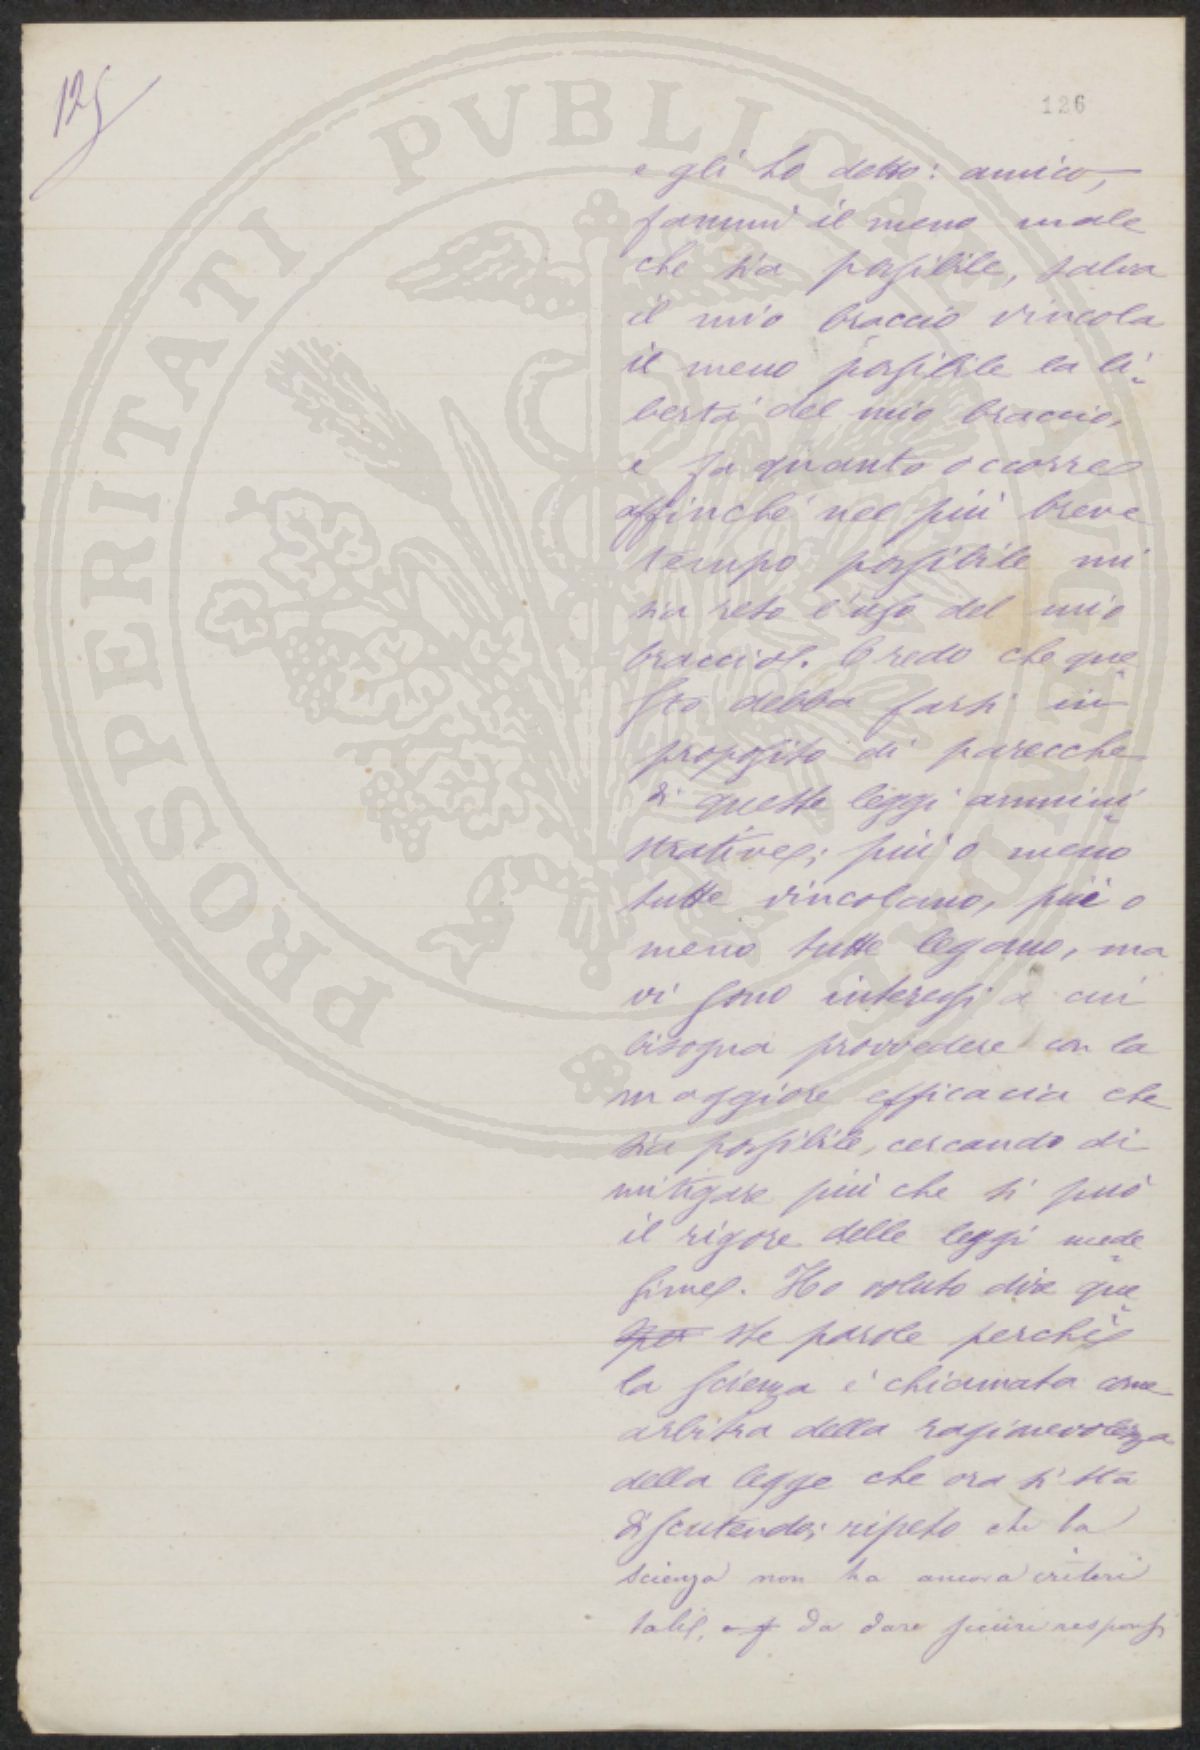 125
126
PROSPERITATI PVBLICAE AVGENDAE
e gli ho detto: amico,
fammi il meno male
che sia possibile, salva
il mio braccio vincola
il meno possibile la li-
bertà del mio braccio,
e fa quanto occorre
affinché nel più breve
tempo possibile mi
sia reso l'uso del mio
braccio. Credo che que-
sto debba farsi in
proposito di parecchie
di queste leggi ammini-
strative; più o meno
tutte vincolano, più o
meno tutte legano, ma
vi sono interessi a cui
bisogna provvedere con la
maggiore efficacia che
sia possibile, cercando di
mitigare più che si può
il rigore delle leggi mede-
sime. Ho voluto dire que-
ste parole perchè
la scienza è chiamata come
arbitra della ragionevolezza
della legge che ora si sta
discutendo; ripeto che la
scienza non ha ancora criteri
tali, da dare sicuri responsi